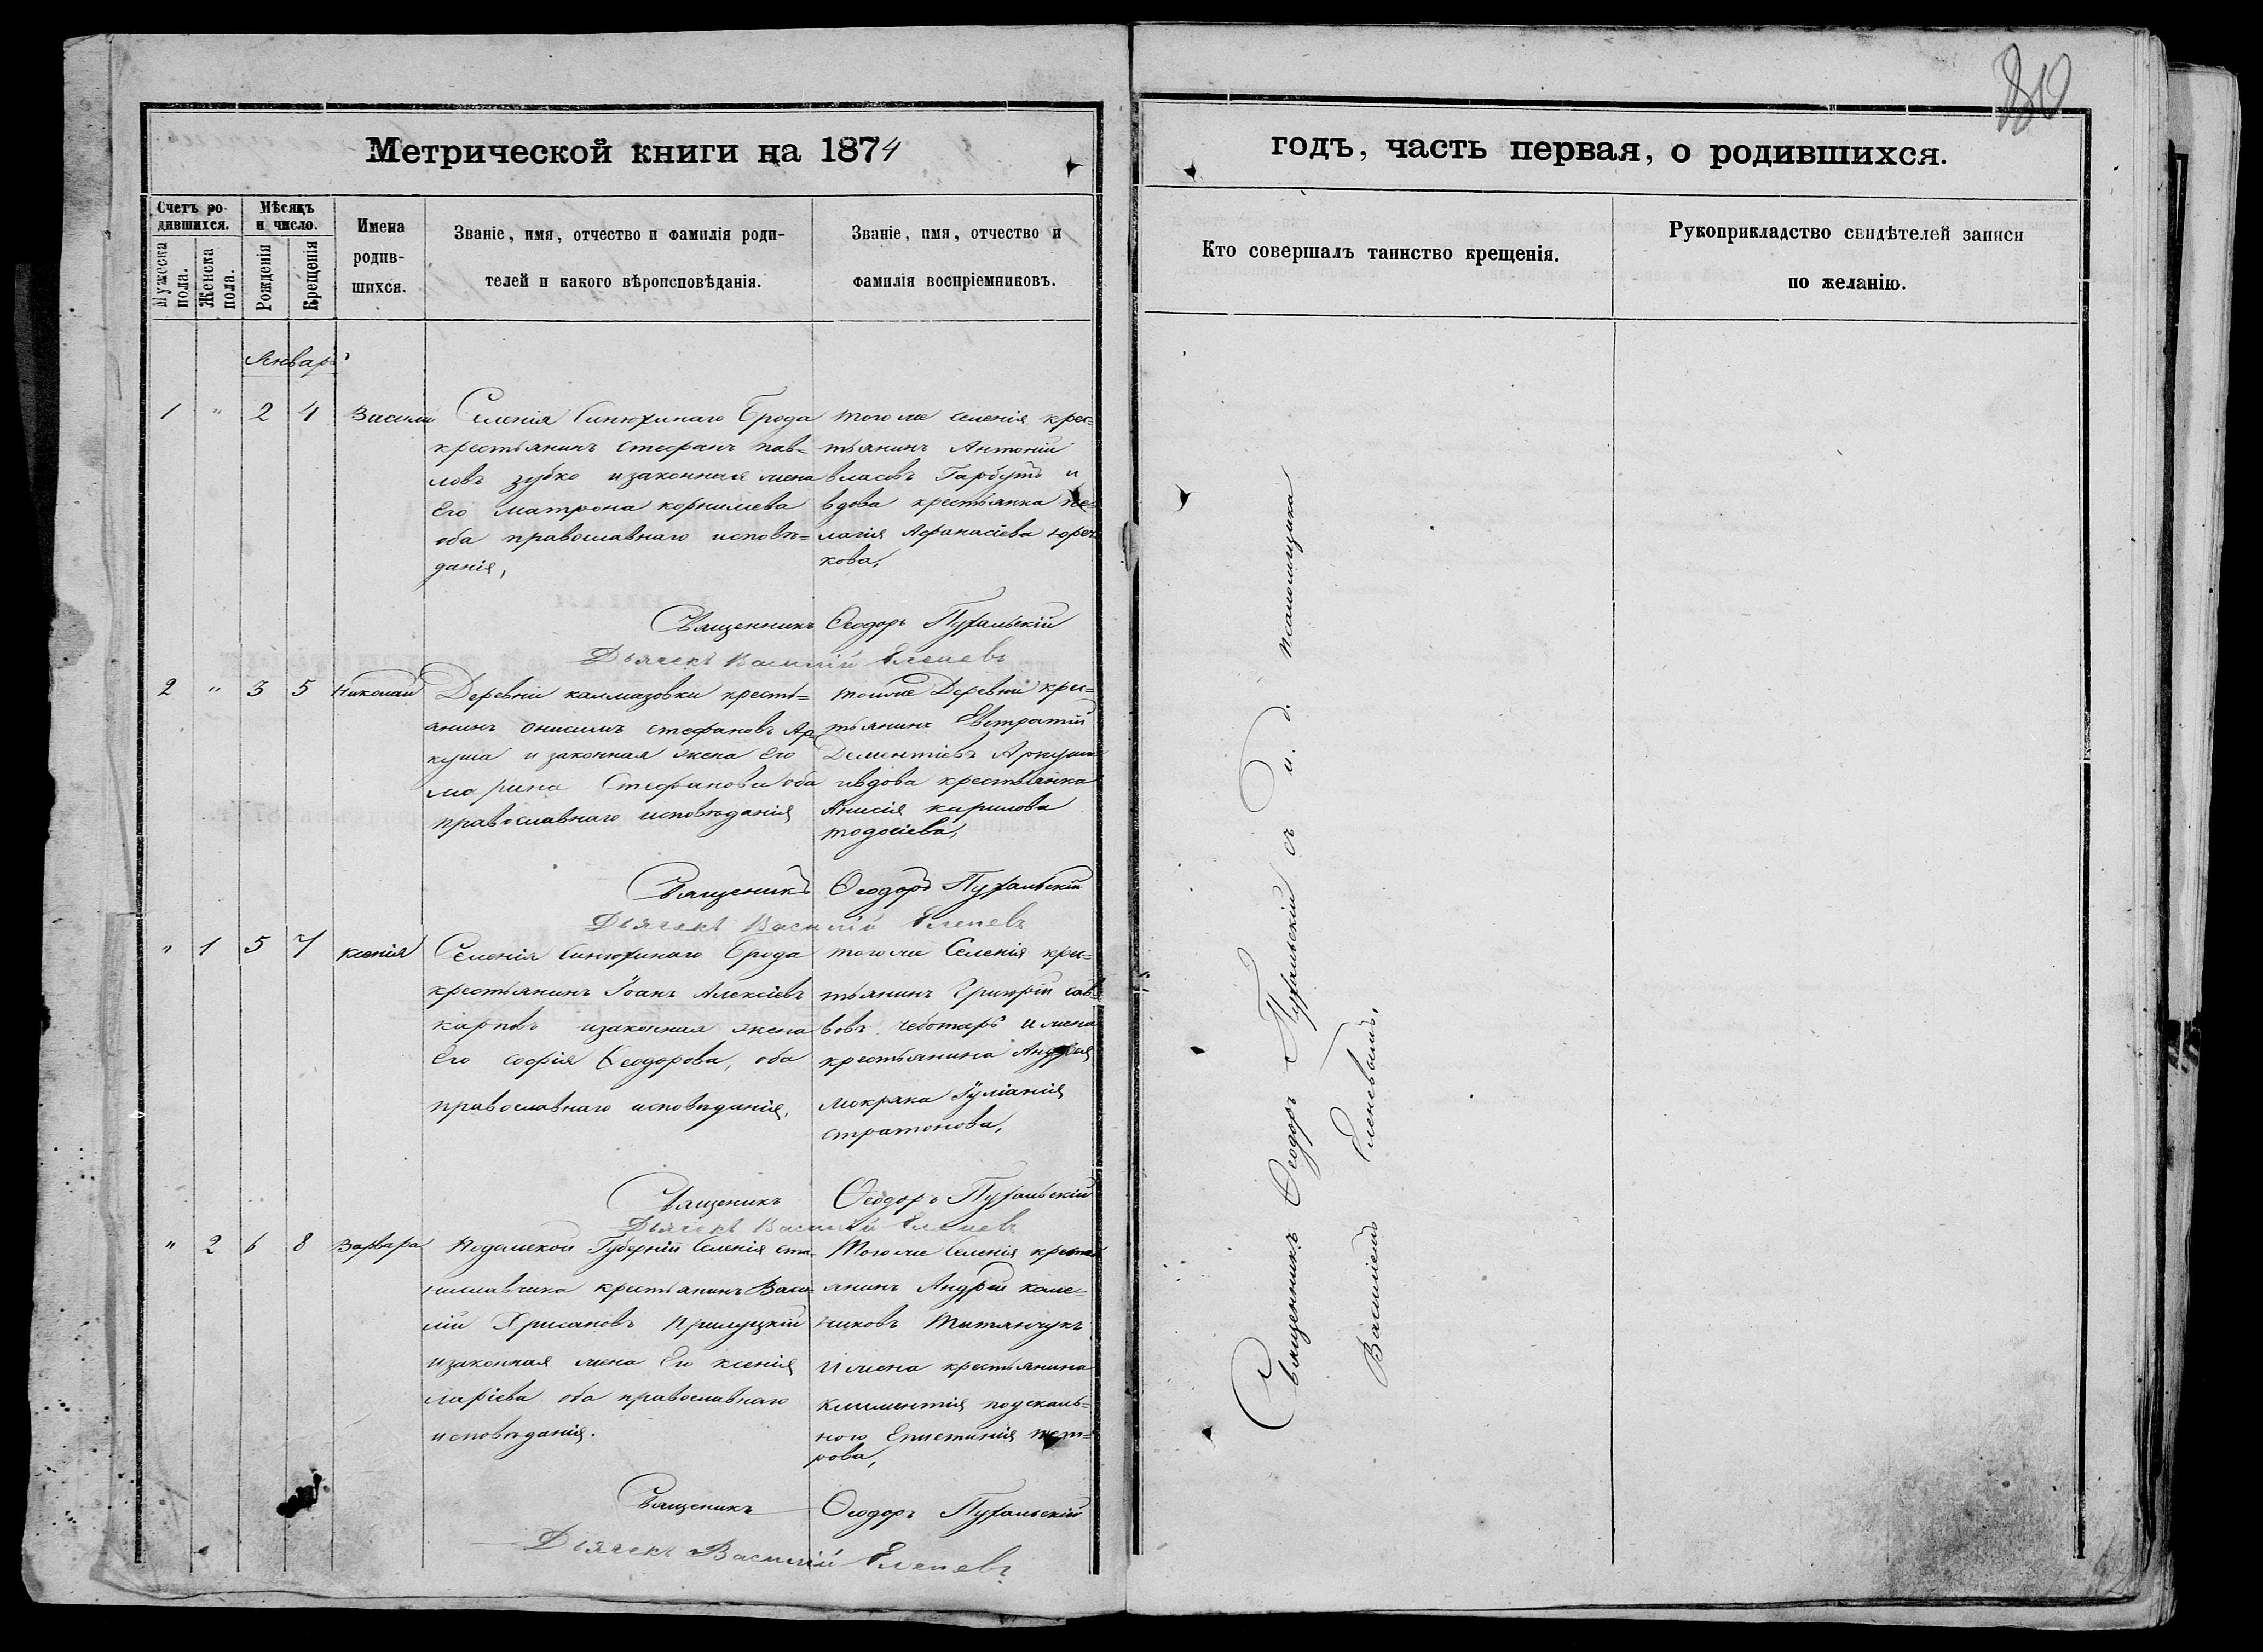 80
Метрической книги на 1874
годъ, часть первая, о родившихся.
Счетъ ро-
дившихся.
Мужеска пола.
Женска пола.
Мѣсяцъ
и число.
Рожденія
Крещенія
Имена
родив-
шихся.
Званіе, имя, отчество и фамилія роди-
телей и какого вѣроисповѣданія.
Званіе, имя, отчество и
фамилія воспріемниковъ.
Кто совершалъ таинство крещенія.
Рукоприкладство свидѣтелей записи
по желанію.
Январь
1 " 2 4 Василій
Селенія Синюхинаго Брода
крестьянинъ Стефанъ Пав=
ловъ Зубко и законная жена
Его Матрона Корнилиева
оба православнаго исповѣ=
данія,
того же селенія крес=
тьянинъ Антоній
Власовъ Гарбузъ и
вдова крестьянка Пе=
лагія Афанасіева Юрен
кова,
Священникъ Ѳеодоръ Пухальскій
Дьячекъ Василій Еленевъ
2 " 3 5 Николай
Деревни Калмазовки кресть=
янинъ Онисимъ Стефановъ Ар=
куша и законная жена Его
Марина Стефанова оба
православнаго исповѣданія
тойже Деревни крес=
тьянинъ Евстратій
Дементіевъ Аркуша
и вдова крестьянка
Анисія Карилова
Тодосіева,
Священикъ Ѳеодоръ Пухальскій
Дьячекъ Василій Еленевъ
" 1 5 7 Ксенія
Селенія Синюхинаго Брода
крестьянинъ Іоанъ Алексіевъ
Карповъ и законная жена
Его Софія Ѳеодорова, оба
православнаго исповѣданія,
того же Селенія крес=
тьянинъ Григорій Сав=
вовъ Чеботарь и жена
крестьянина Андрея
Мокряка Іуліанія
Стратонова,
Священикъ Ѳеодоръ Пухальскій
Дьячекъ Василій Еленевъ
" 2 6 8 Варвара
Подольской Губерніи Селенія Ста-
ниславчика крестьянинъ Васи-
лій Хрисановъ Прилуцкій
и законная жена Его Ксенія
Маріева оба православнаго
исповѣданія.
Того же Селенія кресть
янинъ Андрей Кале=
никовъ Титянчукъ
и жена крестьянина
Климентія Подскаль=
ного Епистимія Пет=
рова,
Священикъ Ѳеодоръ Пухальскій
Дьячекъ Василій Еленевъ
Священникъ Ѳеодоръ Пухальскій съ и. д. псаломщика
Василіемъ Еленевымъ.